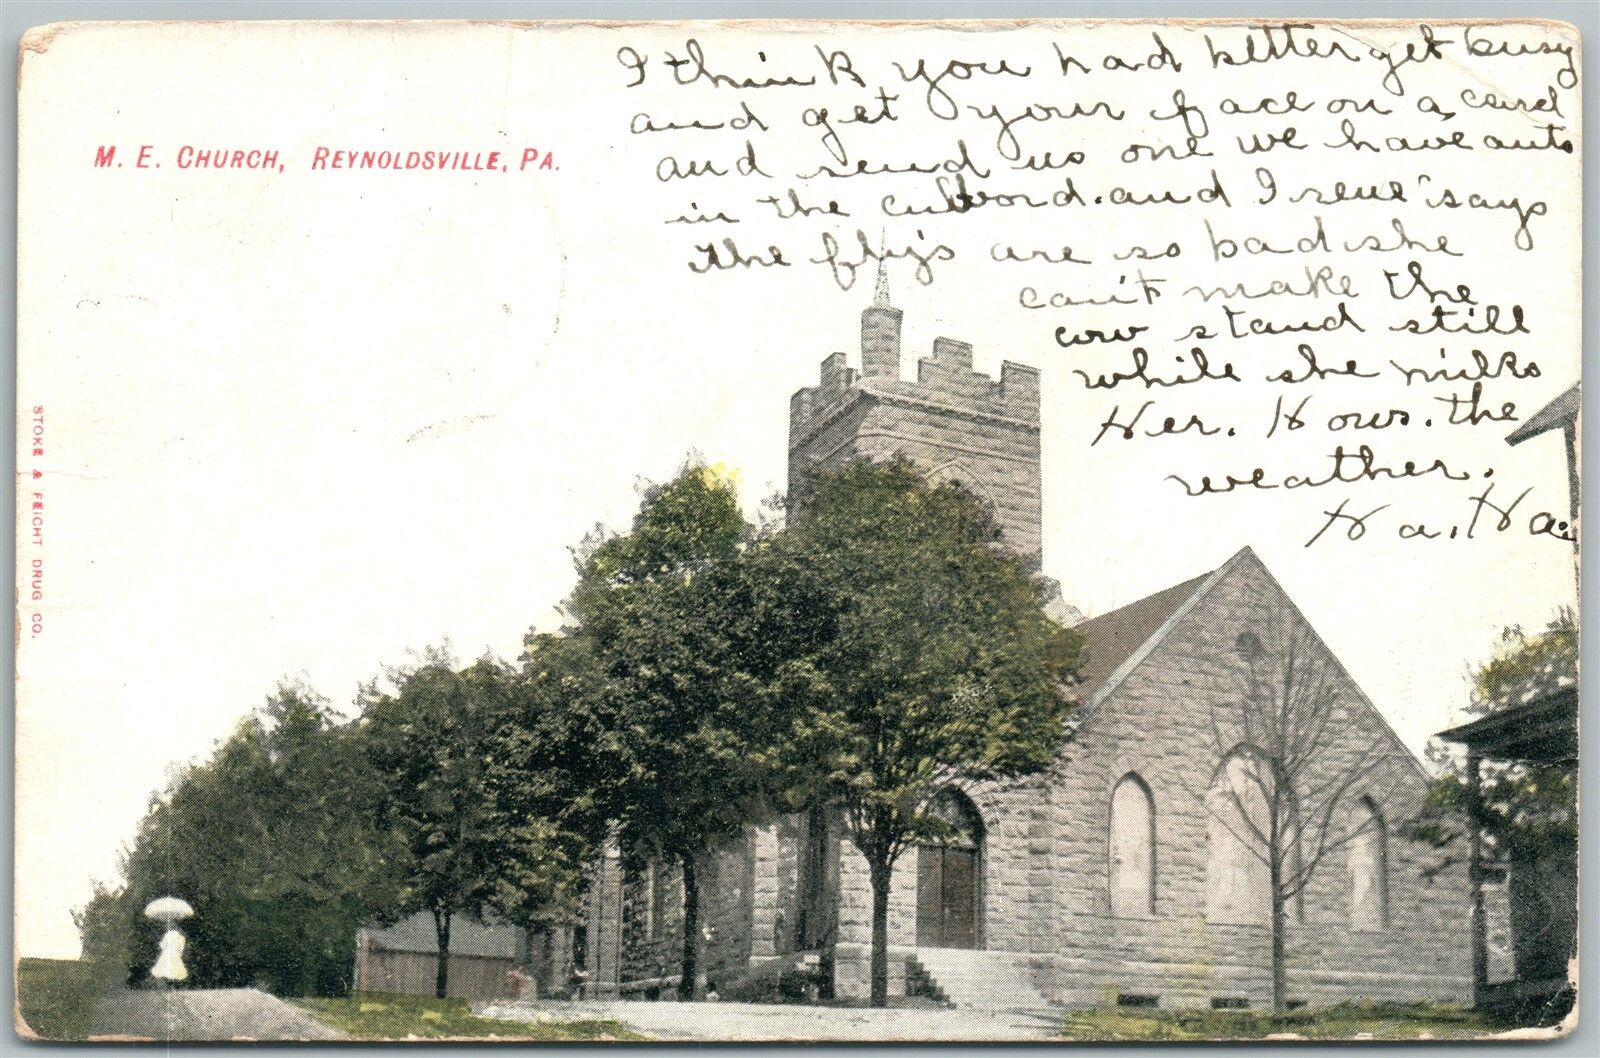 I think you had better get busy
and get your face on a card
and send us one we have auto
in the cubbord. and Irene says
the fly's are so bad she
can't make the
cow stand still
while she milks
Her. Hows. the
weather.
Ha. Ha.
M. E. CHURCH, REYNOLDSVILLE, PA.
STOKE & FEICHT DRUG CO.